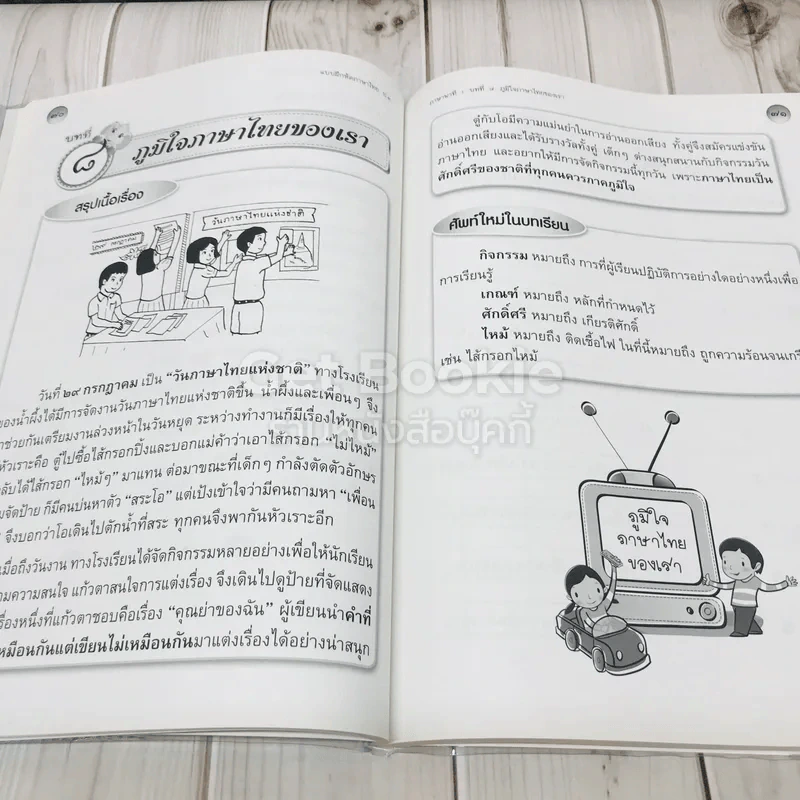 แบบฝึกหัดภาษาไทย ป.๑
๗๐
บทที่
๘
ภูมิใจภาษาไทยของเรา
สรุปเนื้อเรื่อง
วันภาษาไทยแห่งชาติ
๒๙ กรกฎาคม
วันที่ ๒๙ กรกฎาคม เป็น “วันภาษาไทยแห่งชาติ” ทางโรงเรียน
ของน้ำผึ้งได้มีการจัดงานวันภาษาไทยแห่งชาติขึ้น น้ำผึ้งและเพื่อนๆ จึง
าช่วยกันเตรียมงานล่วงหน้าในวันหยุด ระหว่างทำงานก็มีเรื่องให้ทุกคน
หัวเราะคือ ตู่ไปซื้อไส้กรอกปิ้งและบอกแม่ค้าว่าเอาไส้กรอก “ไม่ไหม้”
ลับได้ไส้กรอก “ไหม้ๆ” มาแทน ต่อมาขณะที่เด็กๆ กำลังตัดตัวอักษร
จัดป้าย ก็มีคนบ่นหาตัว “สระโอ” แต่เป้งเข้าใจว่ามีคนถามหา “เพื่อน
จึงบอกว่าโอเดินไปตักน้ำที่สระ ทุกคนจึงพากันหัวเราะอีก
เมื่อถึงวันงาน ทางโรงเรียนได้จัดกิจกรรมหลายอย่างเพื่อให้นักเรียน
ามความสนใจ แก้วตาสนใจการแต่งเรื่อง จึงเดินไปดูป้ายที่จัดแสดง
รื่องหนึ่งที่แก้วตาชอบคือเรื่อง “คุณย่าของฉัน” ผู้เขียนนำคำที่
หมือนกันแต่เขียนไม่เหมือนกันมาแต่งเรื่องได้อย่างน่าสนุก
ภาษาพาที • บทที่ ๘ ภูมิใจภาษาไทยของเรา
๗๑
ตู่กับโอมีความแม่นยำในการอ่านออกเสียง ทั้งคู่จึงสมัครแข่งขัน
อ่านออกเสียงและได้รับรางวัลทั้งคู่ เด็กๆ ต่างสนุกสนานกับกิจกรรมวัน
ภาษาไทย และอยากให้มีการจัดกิจกรรมนี้ทุกวัน เพราะภาษาไทยเป็น
ศักดิ์ศรีของชาติที่ทุกคนควรภาคภูมิใจ
ศัพท์ใหม่ในบทเรียน
กิจกรรม หมายถึง การที่ผู้เรียนปฏิบัติการอย่างใดอย่างหนึ่งเพื่อ
การเรียนรู้
เกณฑ์ หมายถึง หลักที่กำหนดไว้
ศักดิ์ศรี หมายถึง เกียรติศักดิ์
ไหม้ หมายถึง ติดเชื้อไฟ ในที่นี้หมายถึง ถูกความร้อนจนเกรี
เช่น ไส้กรอกไหม้
ภูมิใจ
ภาษาไทย
ของเรา
Get Bookie
ร้านหนังสือบุ๊คกี้